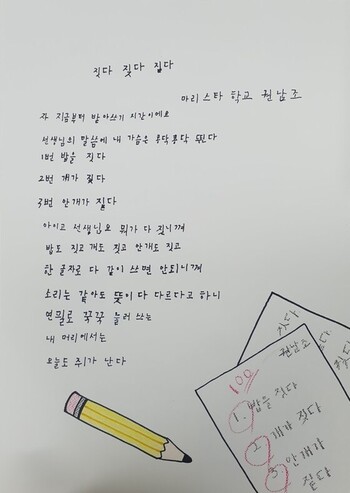 짓다 짖다 짙다
마리스타 학교 권남조
자 지금부터 받아쓰기 시간이에요
선생님의 말씀에 내 가슴은 콩닥콩닥 뛴다
1번 밥을 짓다
2번 개가 짖다
3번 안개가 짙다
아이고 선생님요 뭐가 다 짓니껴
밥도 짓고 개도 짓고 안개도 짓고
한 글자로 다 같이 쓰면 안되니껴
소리는 같아도 뜻이 다 다르다고 하니
연필로 꾹꾹 눌러 쓰는
내 머리에서는
오늘도 쥐가 난다
100
권남조
1. 밥을 짓다
2. 개가 짖다
3. 안개가
짙다